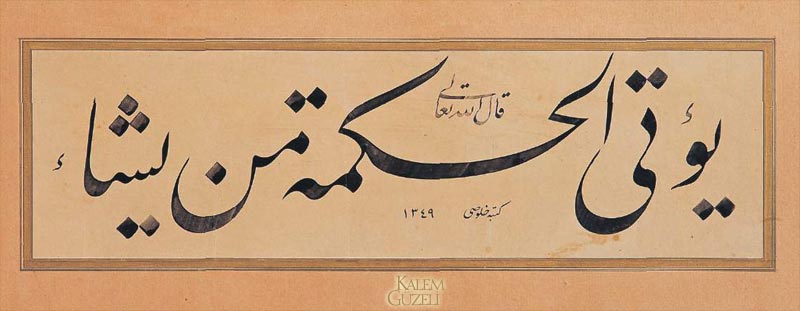 قال الله تعالى
يؤتى الحكمة من يشاء
كتبه خلوصى ١٣٤٩
KALEM
GÜZELİ